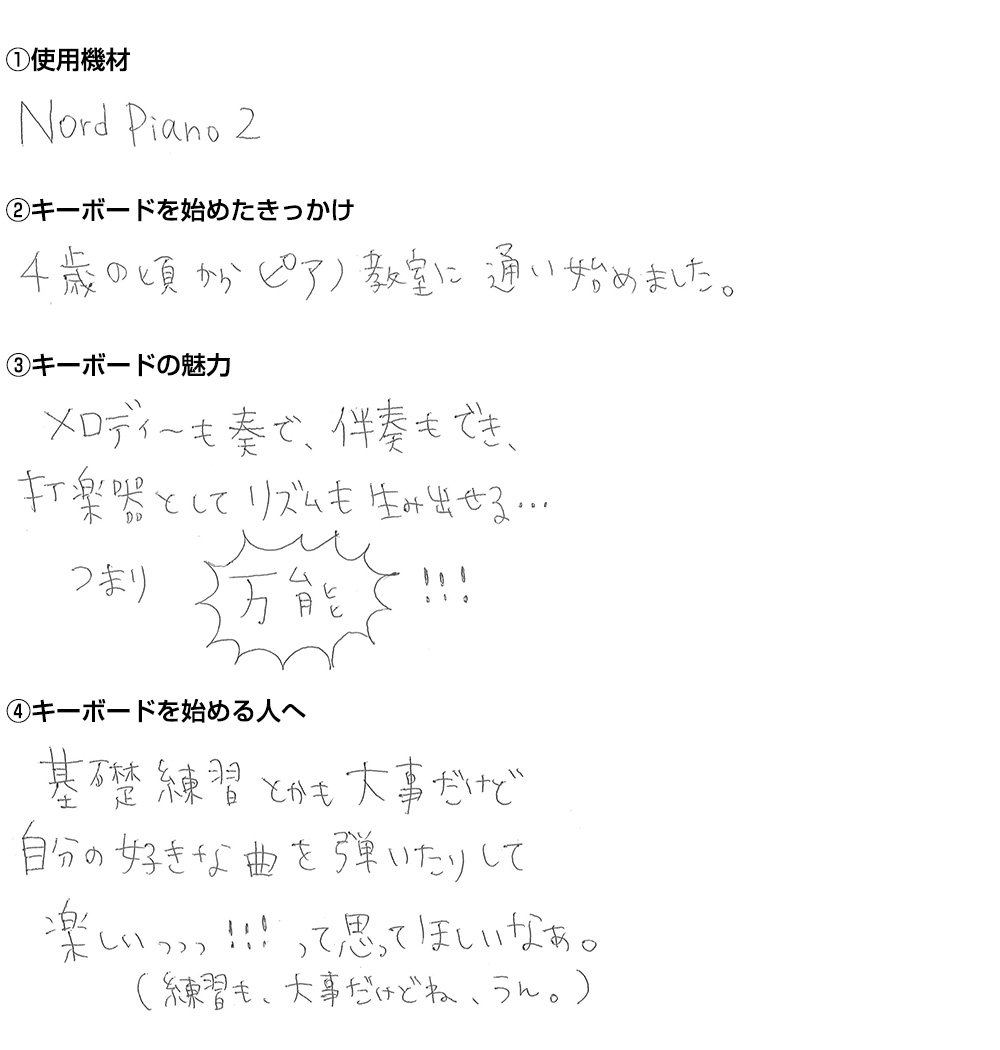 ①使用機材
Nord Piano 2
②キーボードを始めたきっかけ
4歳の頃からピアノ教室に通い始めました。
③キーボードの魅力
メロディ〜も奏で、伴奏もでき、
打楽器としてリズムも生み出せる…
つまり 万能 !!!
④キーボードを始める人へ
基礎練習とかも大事だけど
自分の好きな曲を弾いたりして
楽しいっっっ!!!って思ってほしいなぁ。
(練習も、大事だけどね、うん。)